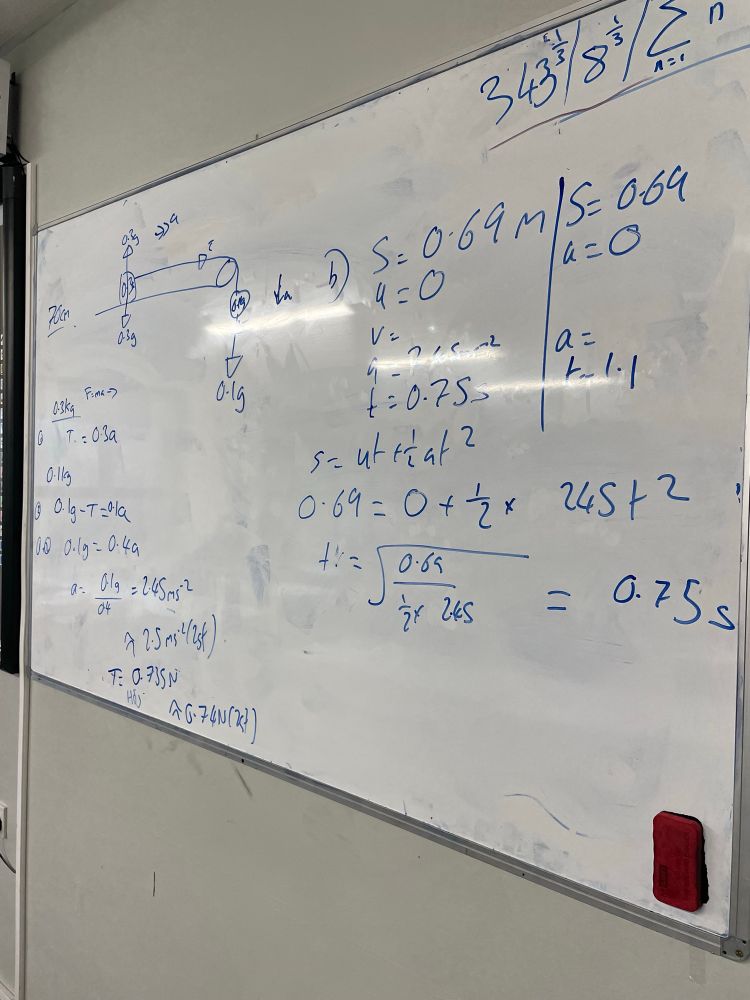 343^1/3 / 8^1/3 / Σ n
n=1
0.3g
a
T
0.3
0.1g
a
70cm
0.3g
0.1g
F=ma →
0.3kg
① T = 0.3a
0.1kg
② 0.1g - T = 0.1a
①② 0.1g = 0.4a
a = 0.1g/0.4 = 2.45ms⁻²
≈ 2.5ms⁻² (2sf)
T = 0.735N
≈ 0.74N (2sf)
b) S = 0.69m
u = 0
v =
a = 2.45ms⁻²
t = 0.75s
S = 0.69
u = 0
a =
t = 1.1
s = ut + ½at²
0.69 = 0 + ½ × 245t²
t = √(0.69 / ½ × 2.45) = 0.75s